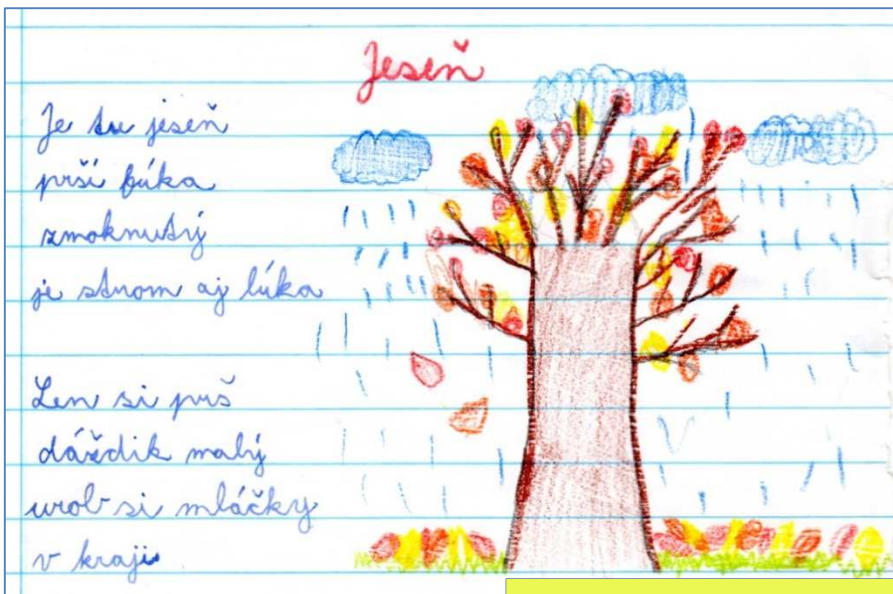 Jeseň
Je tu jeseň
prší fúka
zmoknutý
je strom aj lúka
Len si prš
dáždik malý
urob si mláčky
v kraji